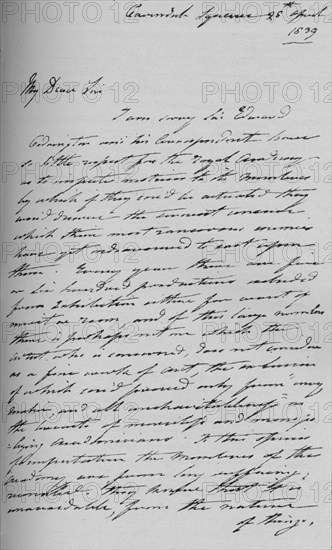 Cavendish Square 25th April
1839
My Dear Sir
I am sorry Sir Edward
Codrington and his Correspondent have
so little respect for the Royal Academy
as to impute motives to its Members
by which if they could be actuated they
would deserve the severest censure
which their most rancorous enemies
have yet endeavoured to cast upon
them. Every year there are five
or six hundred productions excluded
from exhibition either for want of
merit or room and of this large number
there is perhaps not one which the
artist who is concerned, does not consider
as a fine work of art, the exclusion
of which could proceed only from "envy
malice and all uncharitableness" in
the hearts of
academicians. To this species
of imputation the Members of the
Academy are from long suffering
reconciled they
unavoidable, from the nature
of things,